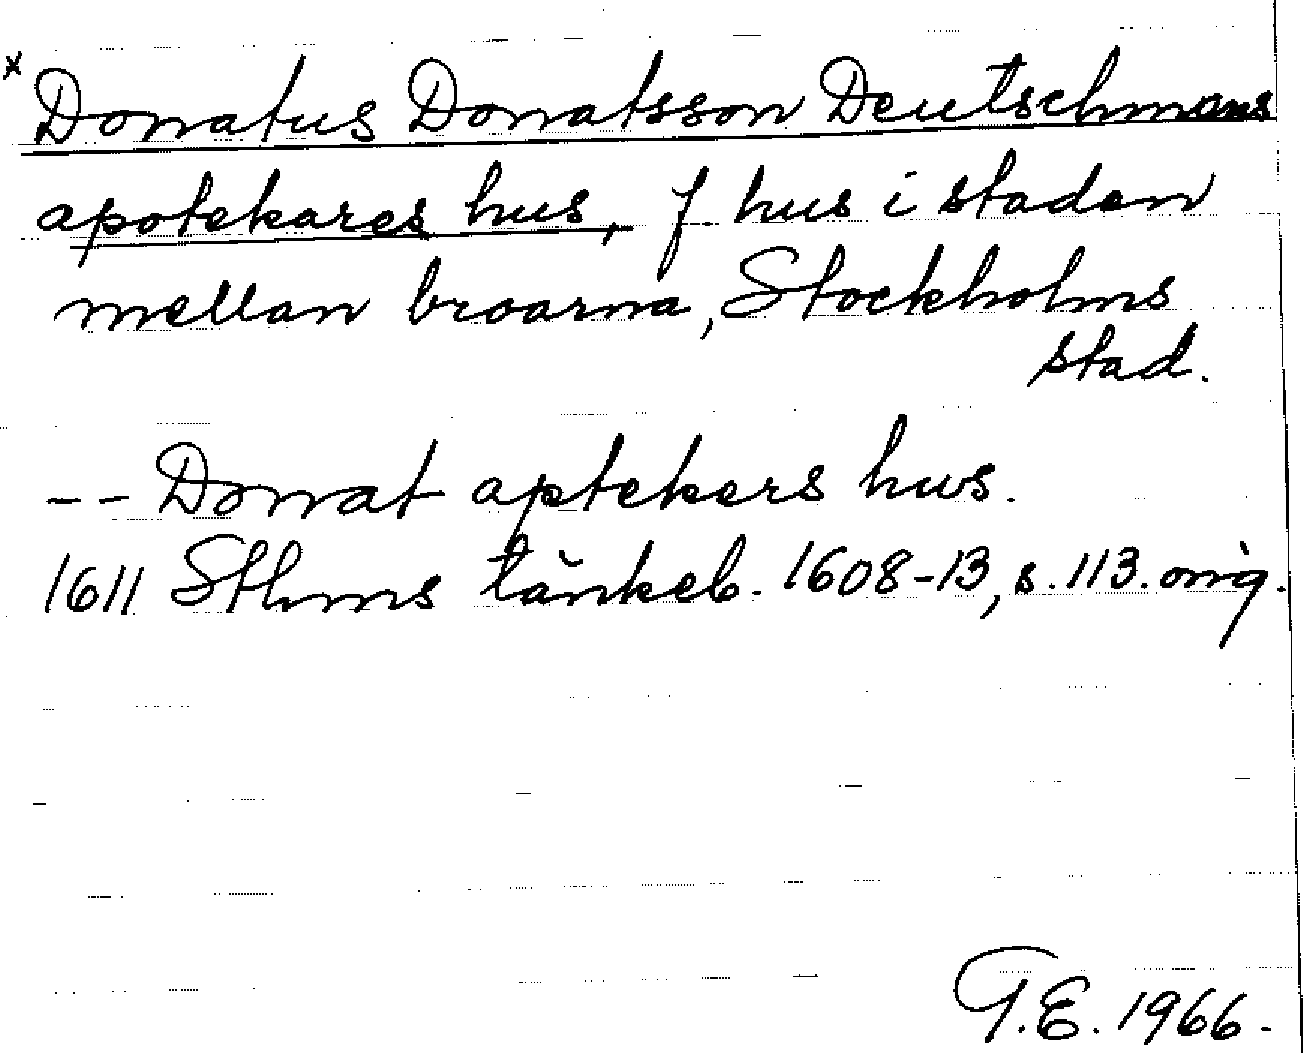 x Donatus Donatsson Deutschmans
apotekares hus, f hus i staden
mellan broarna, Stockholms
stad.
-- Donat aptekers hws.
1611 Sthms tänkeb. 1608-13, s. 113. orig.
T.E. 1966.